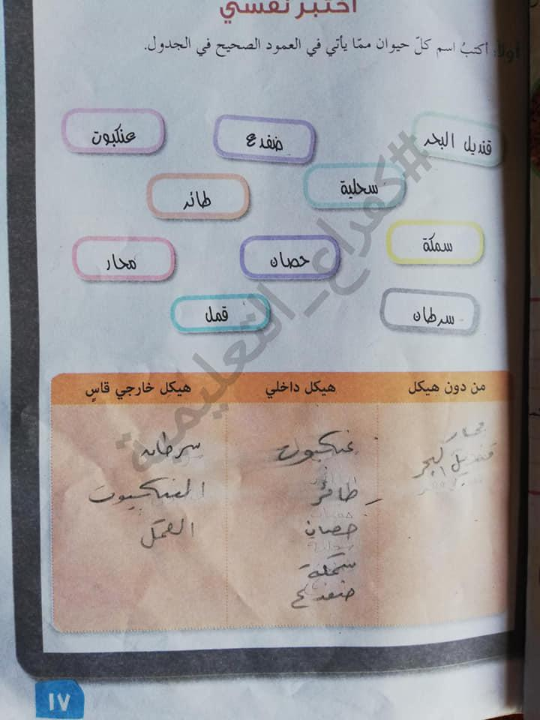 اختبر نفسي
أولاً: أكتبُ اسم كلّ حيوان ممّا يأتي في العمود الصحيح في الجدول.
قنديل البحر
ضفدع
عنكبوت
سحلية
طائر
سمكة
حصان
محار
سرطان
قمل
من دون هيكل
هيكل داخلي
هيكل خارجي قاسٍ
محار
قنديل البحر
عنكبوت
طائر
حصان
سمكة
ضفدع
سرطان
العنكبوت
القمل
#كفراع_التعليمية
١٧